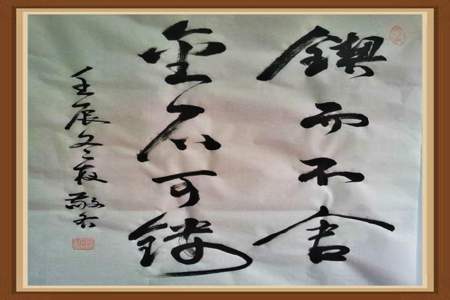 锲而不舍
金石可镂
壬辰冬夜敬书